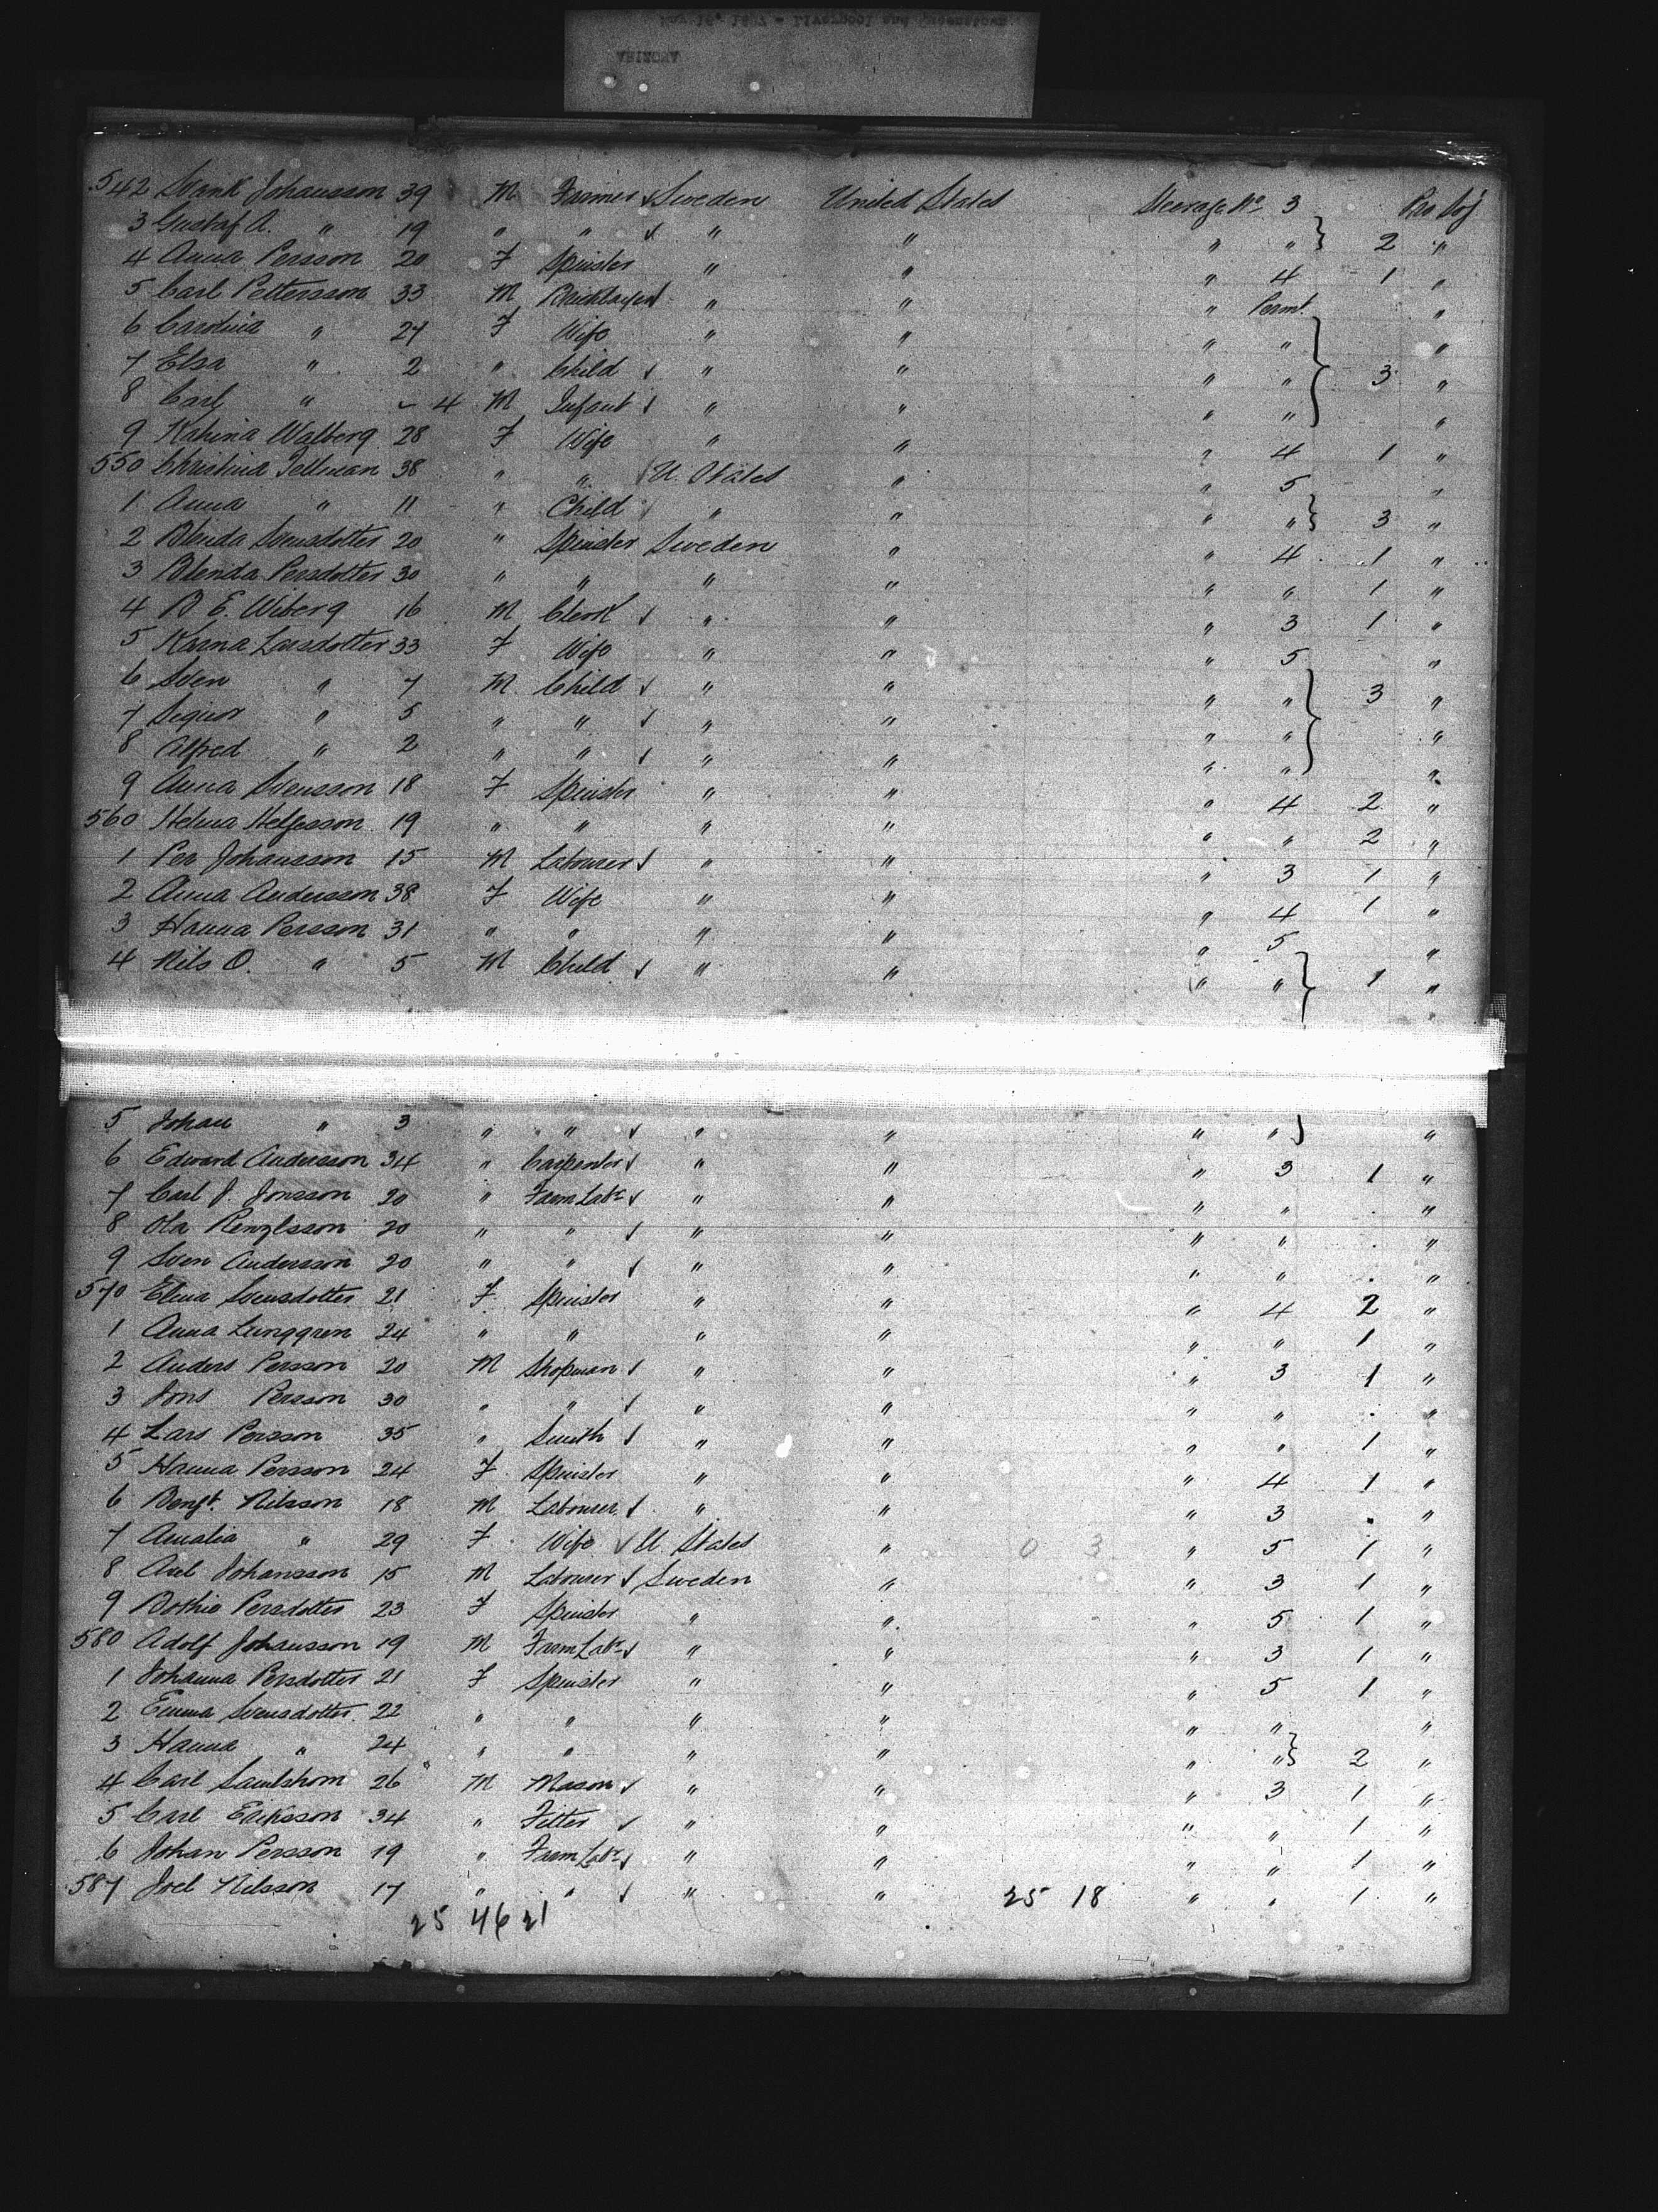 May 16, 1887 - Liverpool and Queenstown
ARIZONA
542 Johansson 39 M Farmer Sweden United States Steerage No. 3 Pro Soj
3 Gustaf A. " 19 " " " " " " 2 "
4 Anna Persson 20 F Spinster " " " 4 1 "
5 Carl Pettersson 33 M Bricklayer " " " Permt. "
6 Carolina " 27 F Wife " " " " "
7 Elsa " 2 " Child " " " " 3 "
8 Carl " - 4 M Infant " " " " "
9 Katrina Walberg 28 F Wife " " " 4 1 "
550 Christina Tellman 38 " " U. States " " 5 "
1 Anna " 11 " Child " " " " 3 "
2 Blenda Svensdotter 20 " Spinster Sweden " " 4 1 "
3 Blenda Persdotter 30 " " " " " " 1 "
4 B E. Wiberg 16 M Clerk " " " 3 1 "
5 Karna Larsdotter 33 F Wife " " " 5 "
6 Sven " 7 M Child " " " " 3 "
7 " 5 " " " " " " "
8 Alfred " 2 " " " " " " "
9 Anna Svensson 18 F Spinster " " " 4 2 "
560 Helna Helgesson 19 " " " " " " 2 "
1 Per Johansson 15 M Labourer " " " 3 1 "
2 Anna Andersson 38 F Wife " " " 4 1 "
3 Hanna Persson 31 " " " " " 5 "
4 Nils O. " 5 M Child " " " " 1 "
5 Johan " 3 " " " " " " "
6 Edward Andersson 34 " Carpenter " " " 3 1 "
7 Carl J. Jonsson 20 " Farm Labr " " " " . "
8 Ola 20 " " " " " " . "
9 Sven Andersson 20 " " " " " " . "
570 Elna Svensdotter 21 F Spinster " " " 4 2 "
1 Anna Lunggren 24 " " " " " " 1 "
2 Anders Persson 20 M Shopman " " " 3 1 "
3 Jons Persson 30 " " " " " " . "
4 Lars Persson 35 " Smith " " " " 1 "
5 Hanna Persson 24 F Spinster " " " 4 1 "
6 Bengt Nilsson 18 M Labourer " " " 3 . "
7 Amalia " 29 F Wife U. States " 0 3 " 5 1 "
8 Axel Johansson 15 M Labourer Sweden " " 3 1 "
9 Bothie Persdotter 23 F Spinster " " " 5 1 "
580 Adolf Johansson 19 M Farm Labr " " " 3 1 "
1 Johanna Persdotter 21 F Spinster " " " 5 1 "
2 Emma Svensdotter 22 " " " " " " "
3 Hanna " 24 " " " " " " 2 "
4 Carl 26 M Mason " " " 3 1 "
5 Carl Eriksson 34 " Fitter " " " " 1 "
6 Johan Persson 19 " Farm Labr " " " " 1 "
587 Joel Nilsson 17 " " " " 25 18 " " 1 "
25 46 21